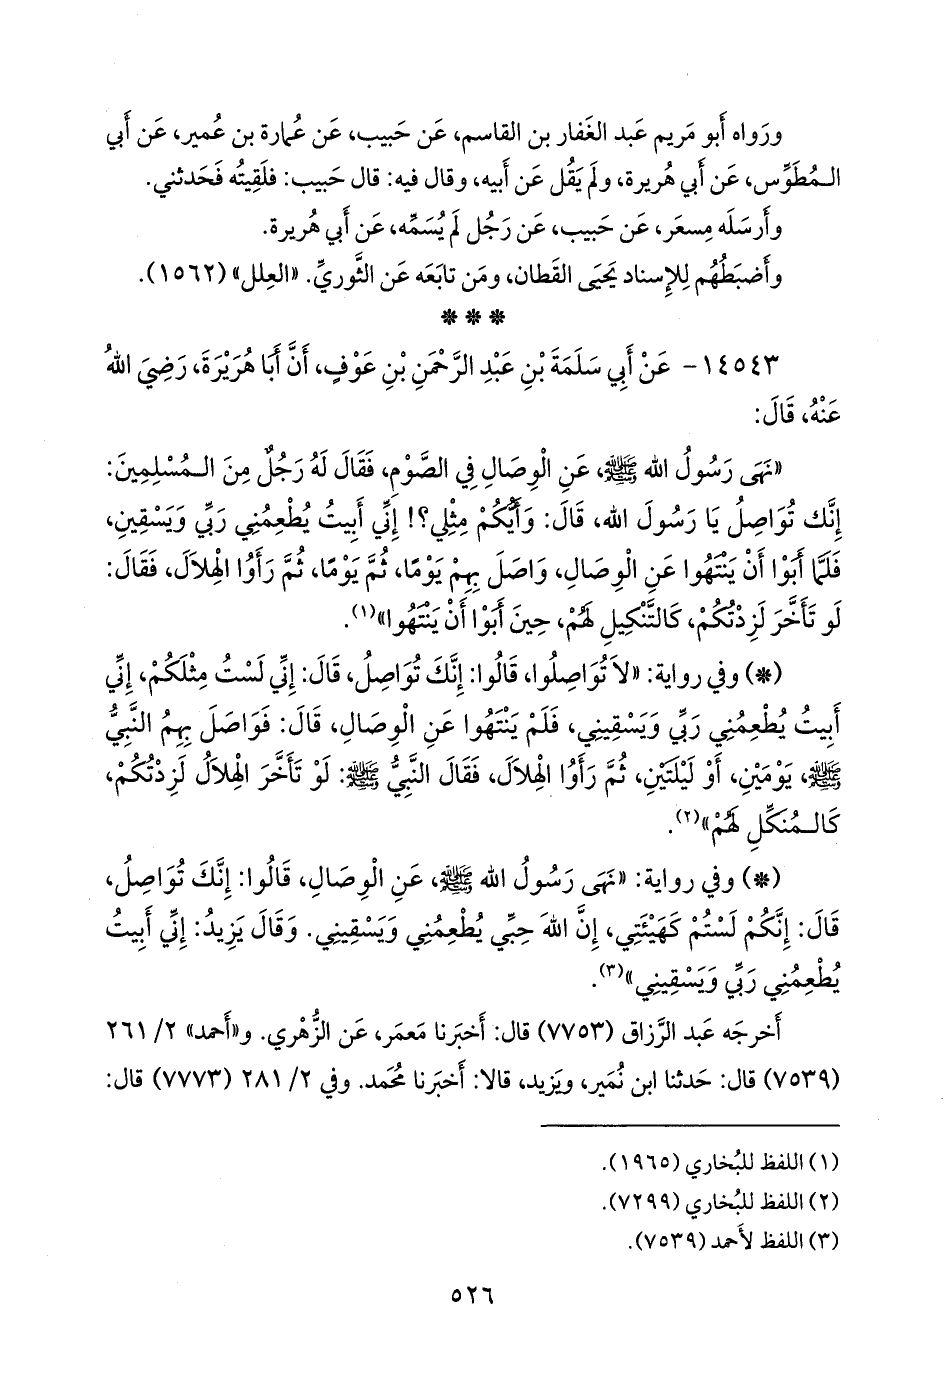 ورَواه أَبو مريم عَبد الغَفار بن القاسم، عَن حَبيب، عَن عُمارة بن عُمير، عَن أَبي
الـمُطَوِّس، عَن أَبي هُريرة، ولَم يَقُل عَن أَبيه، وقال فيه: قال حَبيب: فلَقِيتُه فَحَدثني.
وأَرسَلَه مِسعَر، عَن حَبيب، عَن رَجُل لَم يُسَمِّه، عَن أَبي هُريرة.
وأَضبَطُهُم لِلإِسناد يَحيَى القَطان، ومَن تابَعَه عَن الثَّوريِّ. «العِلل» (١٥٦٢).
* * *
١٤٥٤٣- عَنْ أَبِي سَلَمَةَ بْنِ عَبْدِ الرَّحْمَنِ بْنِ عَوْفٍ، أَنَّ أَبَا هُرَيْرَةَ، رَضِيَ اللهُ
عَنْهُ، قَالَ:
«نَهَى رَسُولُ الله ﷺ، عَنِ الْوِصَالِ فِي الصَّوْمِ، فَقَالَ لَهُ رَجُلٌ مِنَ الـمُسْلِمِينَ:
إِنَّك تُوَاصِلُ يَا رَسُولَ الله، قَالَ: وَأَيُّكُمْ مِثْلِي؟! إِنِّي أَبِيتُ يُطْعِمُنِي رَبِّي وَيَسْقِينِ،
فَلَمَّا أَبَوْا أَنْ يَنْتَهُوا عَنِ الْوِصَالِ، وَاصَلَ بِهِمْ يَوْمًا، ثُمَّ يَوْمًا، ثُمَّ رَأَوُا الْهِلاَلَ، فَقَالَ:
لَو تَأَخَّرَ لَزِدْتُكُمْ، كَالتَّنْكِيلِ لَهُمْ، حِينَ أَبَوْا أَنْ يَنْتَهُوا»(١).
(*) وفي رواية: «لاَ تُوَاصِلُوا، قَالُوا: إِنَّكَ تُوَاصِلُ، قَالَ: إِنِّي لَسْتُ مِثْلَكُمْ، إِنِّي
أَبِيتُ يُطْعِمُنِي رَبِّي وَيَسْقِينِي، فَلَمْ يَنْتَهُوا عَنِ الْوِصَالِ، قَالَ: فَوَاصَلَ بِهِمُ النَّبِيُّ
ﷺ، يَوْمَيْنِ، أَوْ لَيْلَتَيْنِ، ثُمَّ رَأَوُا الْهِلاَلَ، فَقَالَ النَّبِيُّ ﷺ: لَوْ تَأَخَّرَ الْهِلاَلُ لَزِدْتُكُمْ،
كَالـمُنَكِّلِ لَهُمْ»(٢).
(*) وفي رواية: «نَهَى رَسُولُ الله ﷺ، عَنِ الْوِصَالِ، قَالُوا: إِنَّكَ تُوَاصِلُ،
قَالَ: إِنَّكُمْ لَسْتُمْ كَهَيْئَتِي، إِنَّ اللهَ حِبِّي يُطْعِمُنِي وَيَسْقِينِي. وَقَالَ يَزِيدُ: إِنِّي أَبِيتُ
يُطْعِمُنِي رَبِّي وَيَسْقِينِي»(٣).
أَخرجَه عَبد الرَّزاق (٧٧٥٣) قال: أَخبَرنا مَعمَر، عَن الزُّهْري. و«أَحمد» ٢/ ٢٦١
(٧٥٣٩) قال: حَدثنا ابن نُمَير، ويَزيد، قالا: أَخبَرنا مُحَمد. وفي ٢/ ٢٨١ (٧٧٧٣) قال:
(١) اللفظ للبُخاري (١٩٦٥).
(٢) اللفظ للبُخاري (٧٢٩٩).
(٣) اللفظ لأَحمد (٧٥٣٩).
٥٢٦